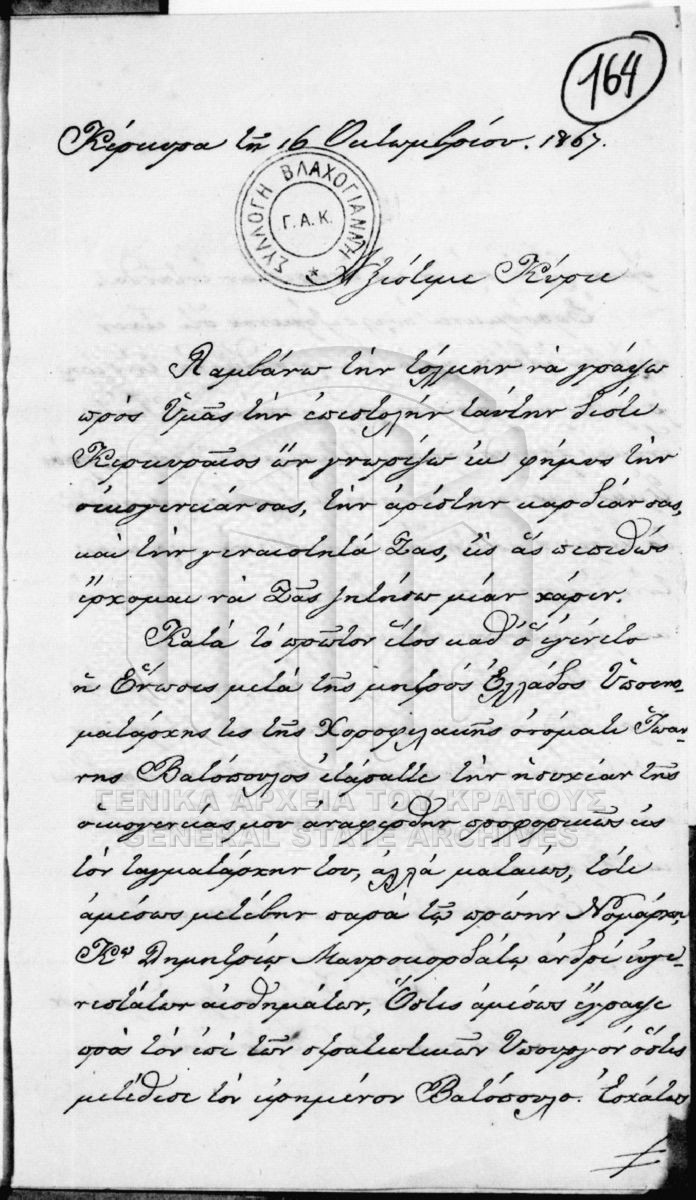 164
Κέρκυρα τῇ 16 Ὀκτωμβρίου. 1867.
ΣΥΛΛΟΓΗ ΒΛΑΧΟΓΙΑΝΝΗ
Γ.Α.Κ.
Ἀξιότιμε Κύριε
Λαμβάνω τὴν τόλμην νὰ γράψω
πρὸς Ὑμᾶς τὴν ἐπιστολὴν ταύτην διότι
Κερκυραῖος ὢν γνωρίζω ἐκ φήμης τὴν
οἰκογενειάν σας, τὴν ἀρίστην καρδιάν σας,
καὶ τὴν γεναιότητά Σας, εἰς ἃς πεπιθὼς
ἔρχομαι νὰ Σᾶς ζητήσω μίαν χάριν.
Κατὰ τὸ πρῶτον ἔτος καθ' ὃ ἐγένετο
ἡ Ἕνωσις μετὰ τῆς μητρὸς Ἑλλάδος Ὑπενω-
ματάρχης τις τῆς Χοροφυλακῆς ὀνόματι Ἰωάν-
νης Βατόπουλος ἐτάραττε τὴν ἡσυχίαν τῆς
οἰκογενείας μου ἀναφέρθην προφορικῶς εἰς
τὸν ταγματάρχην του, ἀλλὰ ματαίως, τότε
ἀμέσως μετέβην παρὰ τῷ πρώην Νομάρχῃ
Κῳ Δημητρίῳ Μαυροκορδάτῳ ἀνδρὶ εὐγε-
νεστάτων αἰσθημάτων, Ὅστις ἀμέσως ἔγραψε
πρὸς τὸν ἐπὶ τῶν στρατιωτικῶν Ὑπουργὸν ὅστις
μετέθεσε τὸν εἰρημένον Βατόπουλο. Ἐσχάτως
ΓΕΝΙΚΑ ΑΡΧΕΙΑ ΤΟΥ ΚΡΑΤΟΥΣ
GENERAL STATE ARCHIVES